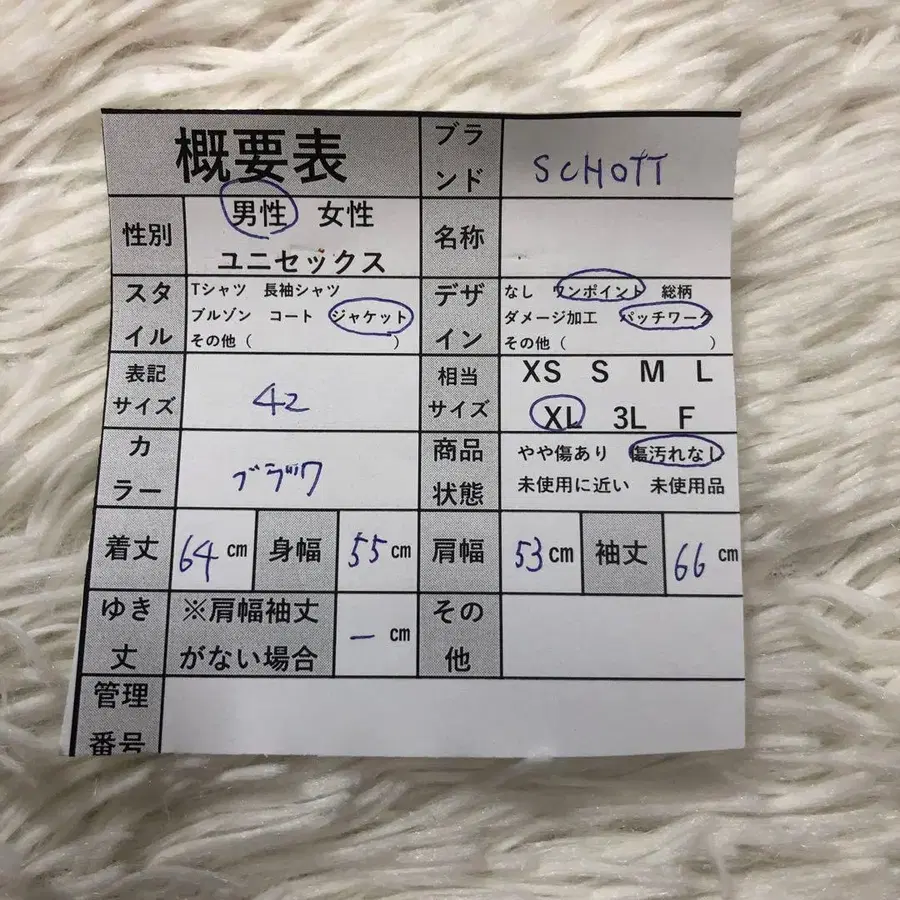 概要表
ブランド
SCHOTT
性別
男性 女性
ユニセックス
名称
スタイル
Tシャツ 長袖シャツ
ブルゾン コート ジャケット
その他（ ）
デザイン
なし ワンポイント 総柄
ダメージ加工 パッチワーク
その他（ ）
表記
サイズ
42
相当
サイズ
XS S M L
XL 3L F
カラー
ブラック
商品
状態
やや傷あり 傷汚れなし
未使用に近い 未使用品
着丈
64 cm
身幅
55 cm
肩幅
53 cm
袖丈
66 cm
ゆき丈
※肩幅袖丈
がない場合
ー cm
その他
管理
番号